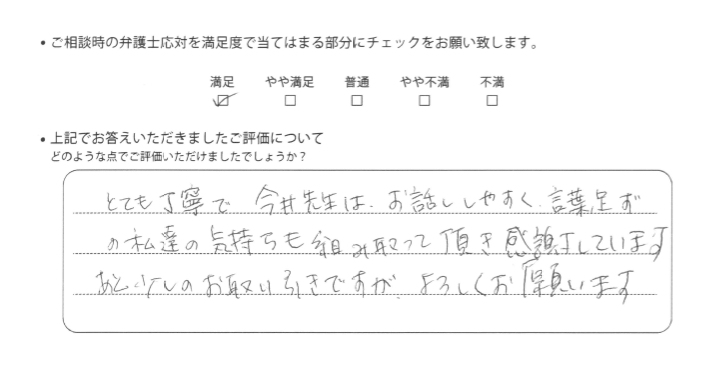 ・ご相談時の弁護士応対を満足度で当てはまる部分にチェックをお願い致します。
満足 やや満足 普通 やや不満 不満
・上記でお答えいただきましたご評価について
どのような点でご評価いただけましたでしょうか？
とても丁寧で 今井先生は、お話ししやすく、言葉足ず
の私達の気持ちも組み取って頂き感謝しています
あと少しのお取り引きですが、よろしくお願います